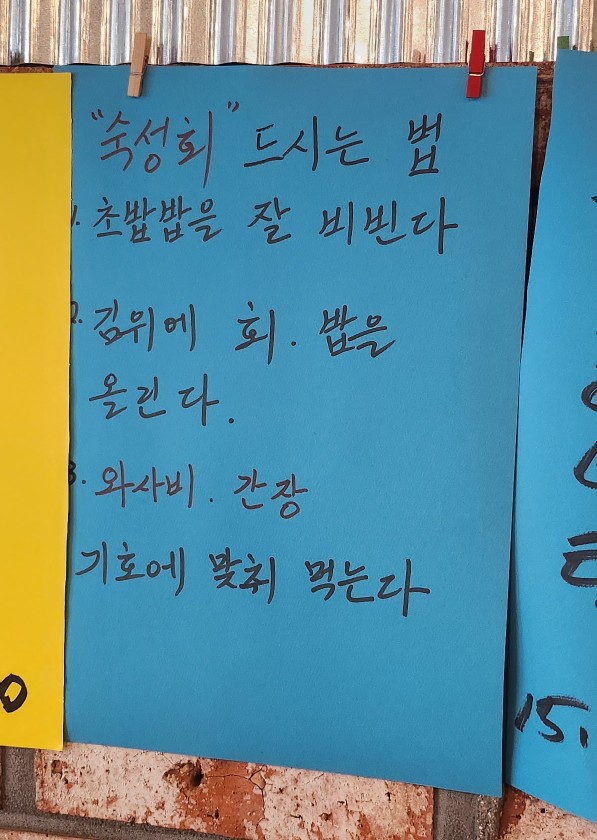 "숙성회" 드시는 법
1. 초밥밥을 잘 비빈다
2. 김위에 회. 밥을
올린다.
3. 와사비. 간장
기호에 맞춰 먹는다
0
15.